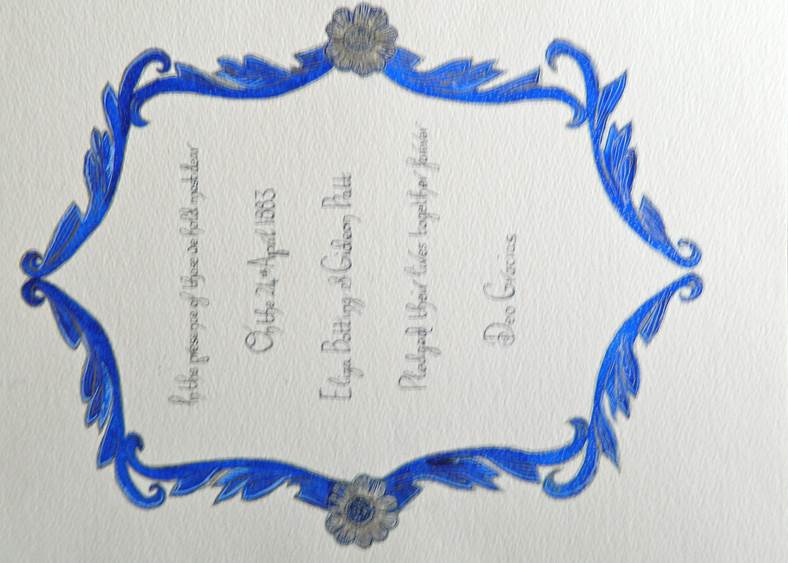 In the presence of those we hold most dear
On the 24th April 1883
Eliza Botting & Gideon Platt
Pledged their lives together forever
Deo Gracias